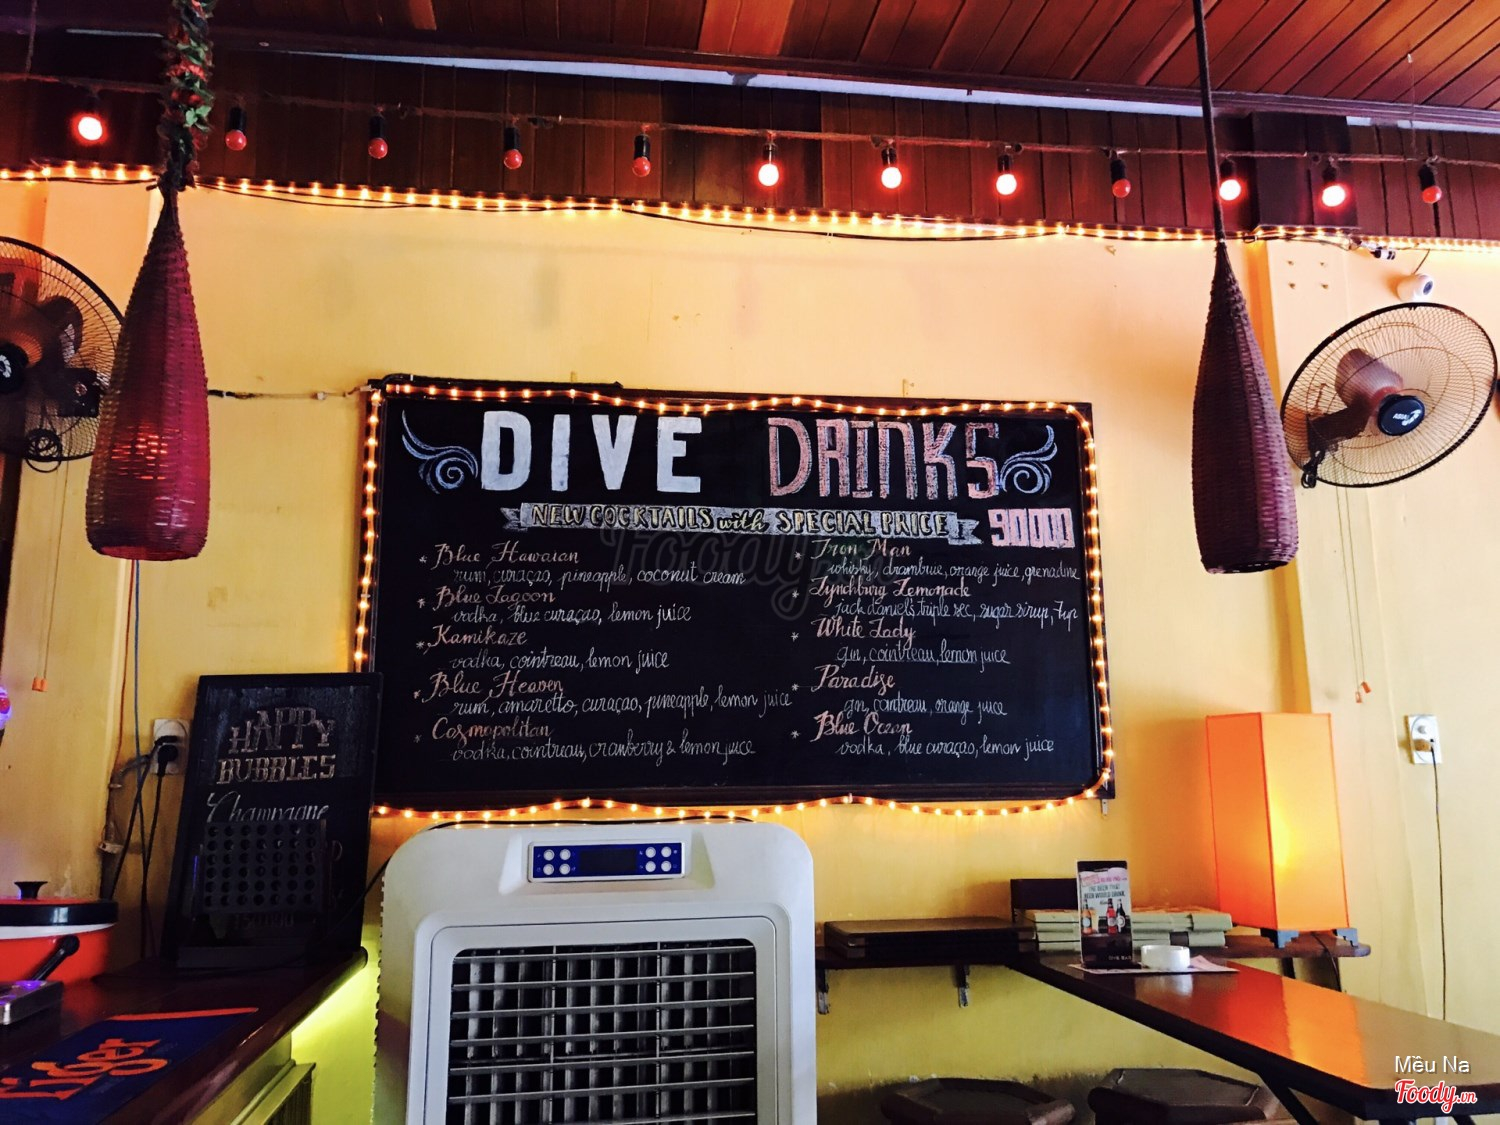 DIVE DRINKS
NEW COCKTAILS with SPECIAL PRICE 90000
* Blue Hawaian
rum, curaçao, pineapple, coconut cream
* Blue Lagoon
vodka, blue curaçao, lemon juice
* Kamikaze
vodka, cointreau, lemon juice
* Blue Heaven
rum, amaretto, curaçao, pineapple, lemon juice
* Cosmopolitan
vodka, cointreau, cranberry & lemon juice
* Iron Man
whisky, drambuie, orange juice, grenadine
* Lynchburg Lemonade
jack daniel's, triple sec, sugar sirup, 7up
* White Lady
gin, cointreau, lemon juice
* Paradise
gin, cointreau, orange juice
* Blue Ocean
vodka, blue curaçao, lemon juice
HAPPY
BUBBLES
Champagne
Tiger
ASIA
Foody
Mều Na
Foody.vn